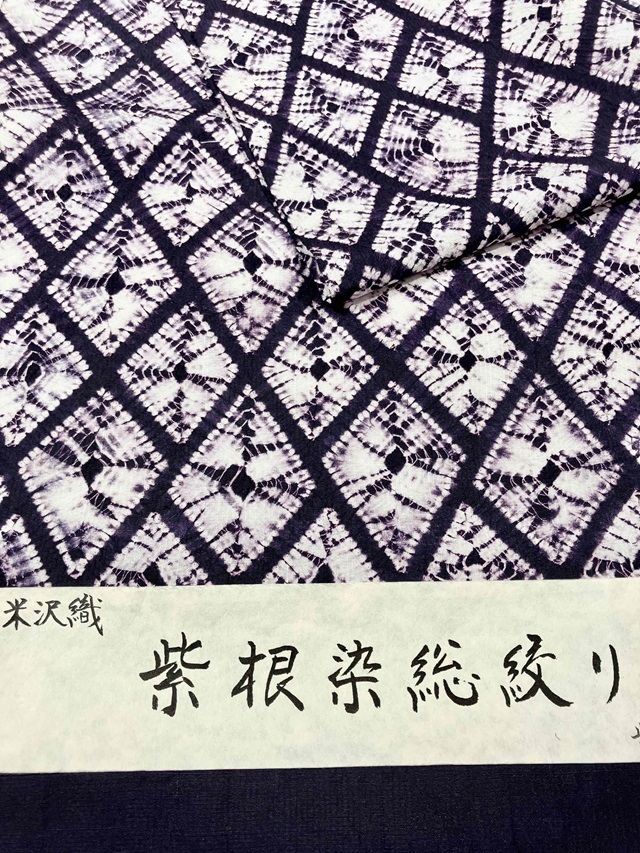 米沢織
紫根染総絞り